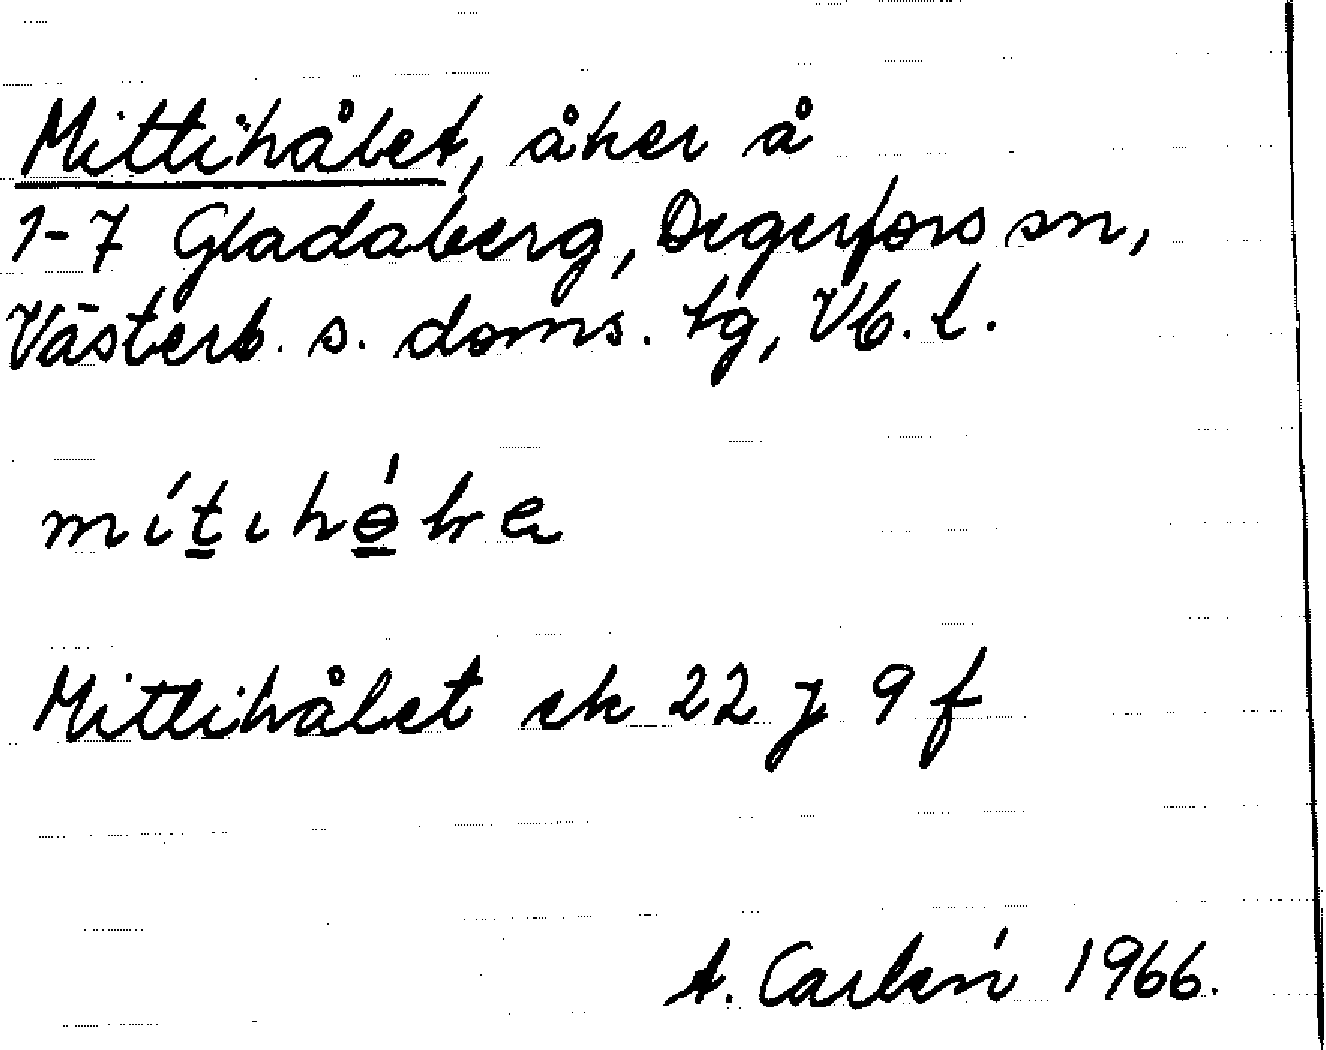 Mittihålet, åker å
1-7 Gladaberg, Degerfors sn,
Västerb. s. doms. tg, Vb. l.
Mittihålet ek 22 J 9 f
A. Carlén 1966.